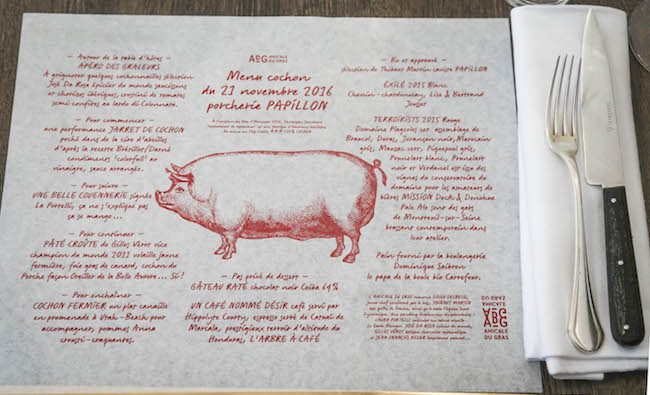 — Autour de la table d'hôtes —
APÉRO DES GRALEURS
A grignoter quelques cochonnailles sélection
José Da Rosa épicier du monde saucissons
et chorizos ibériques, crostini de tomates
semi confites au lardo di Colonnata.
— Pour commencer —
une performance JARRET DE COCHON
poché dans de la cire d'abeilles
d'après la recette
condiments 'colorfull' au
vinaigre, sauce arrangée.
— Pour suivre —
UNE BELLE COUENNERIE signée
La Portelli, ça ne s'explique pas
ça se mange...
— Pour continuer —
PÂTÉ CROÛTE de Gilles Vérot vice
champion du monde 2011 volaille jaune
fermière, foie gras de canard, cochon du
Perche façon Oreiller de la Belle Aurore... Si !
— Pour enchaîner —
COCHON FERMIER un plat canaille
en promenade à Utah-Beach pour
accompagner, pommes Anna
crousti-craquantes.
ABG AMICALE
DU GRAS
Menu cochon
du 21 novembre 2016
porcherie PAPILLON
— Pas privé de dessert —
GÂTEAU RATÉ chocolat noir Ceiba 64%
UN CAFÉ NOMMÉ DÉSIR café servi par
Hippolyte Courty, espresso serré de Casual de
Marcala, prestigieux terroir d'altitude du
Honduras, L'ARBRE À CAFÉ
— En or apprenti —
sélection de Thibaut Martin caviste PAPILLON
EXILÉ 2015 Blanc
Chenin-chardonnay, Lise & Bertrand
Jousset
TERROIRISTS 2015 Rouge
Domaine Plageoles 1er assemblage de
Braucol, Duras, Jurançon noir, Morescain
gris, Mauzac vert, Piquepoul gris,
Prunelart blanc, Prunelart
noir et Verdanel et issu des
vignes du conservatoire du
domaine pour les amateurs de
bières MISSION Deck & Donohue
Pale Ale sont des gars
de Montreuil-sur-Seine
brassant contemporain dans
leur atelier.
Pain fourni par la boulangerie
Dominique Saibron
le papa de la boule bio Carrefour.
L'AMICALE DU GRAS remercie
LAURA PORTELLI
JOSÉ DA ROSA
GILLES VÉROT
JEAN-FRANÇOIS
ABG
AMICALE
DU GRAS